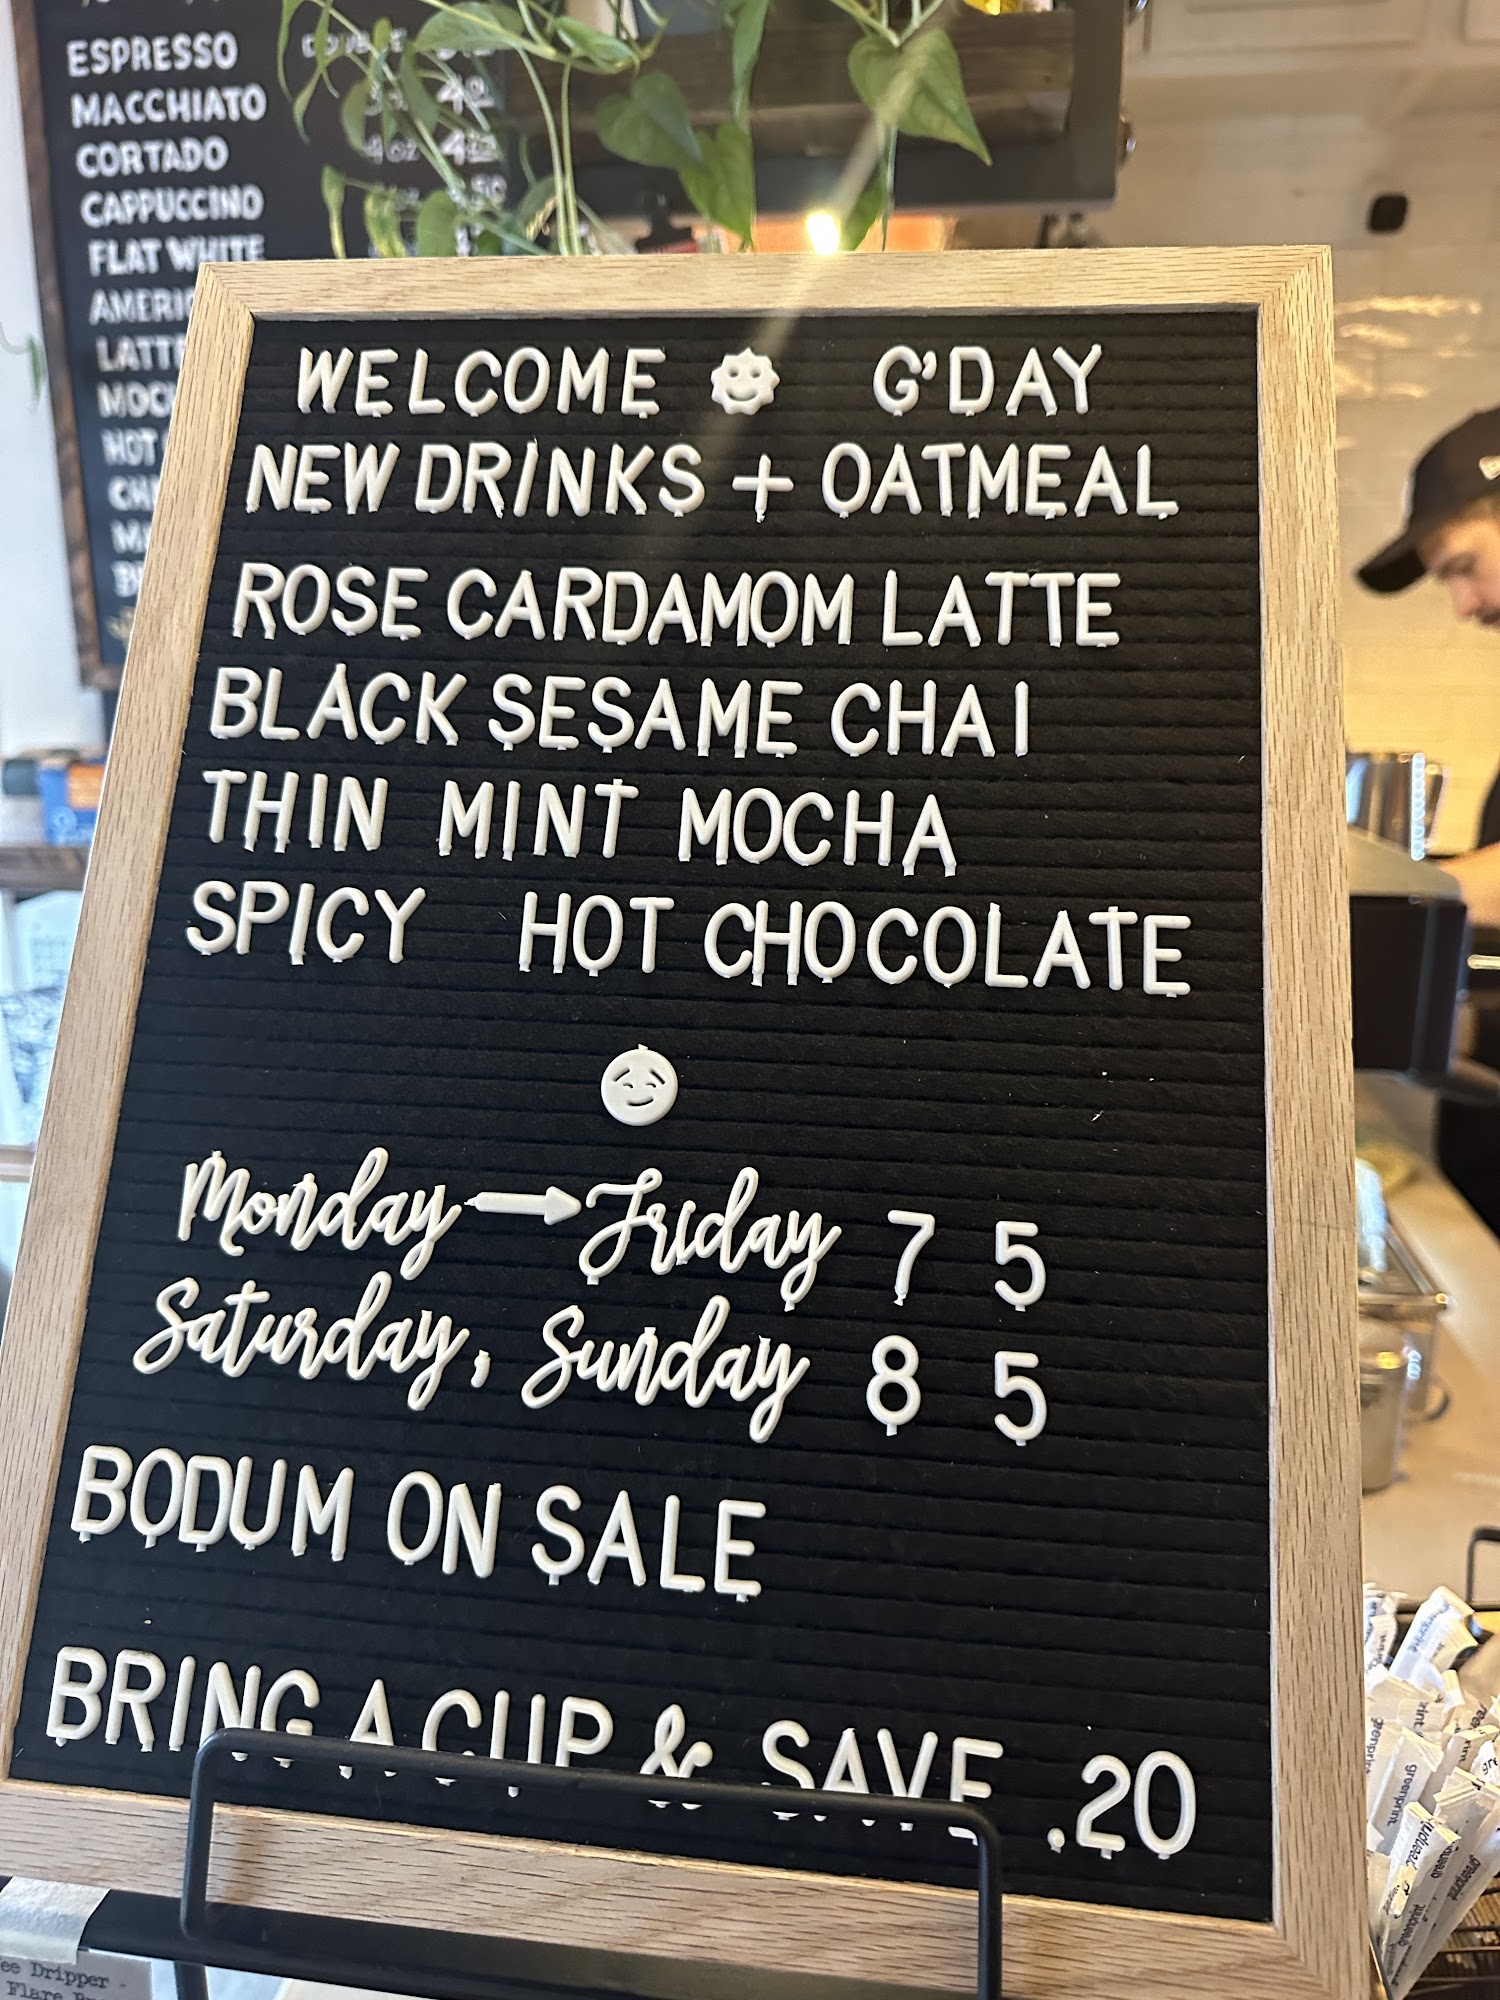 ESPRESSO
MACCHIATO
CORTADO 4oz
CAPPUCCINO
FLAT WHITE
WELCOME G'DAY
NEW DRINKS + OATMEAL
ROSE CARDAMOM LATTE
BLACK SESAME CHAI
THIN MINT MOCHA
SPICY HOT CHOCOLATE
Monday → Friday 7 5
Saturday, Sunday 8 5
BODUM ON SALE
BRING A CUP & SAVE .20
Dripper -
Flare
greenprint